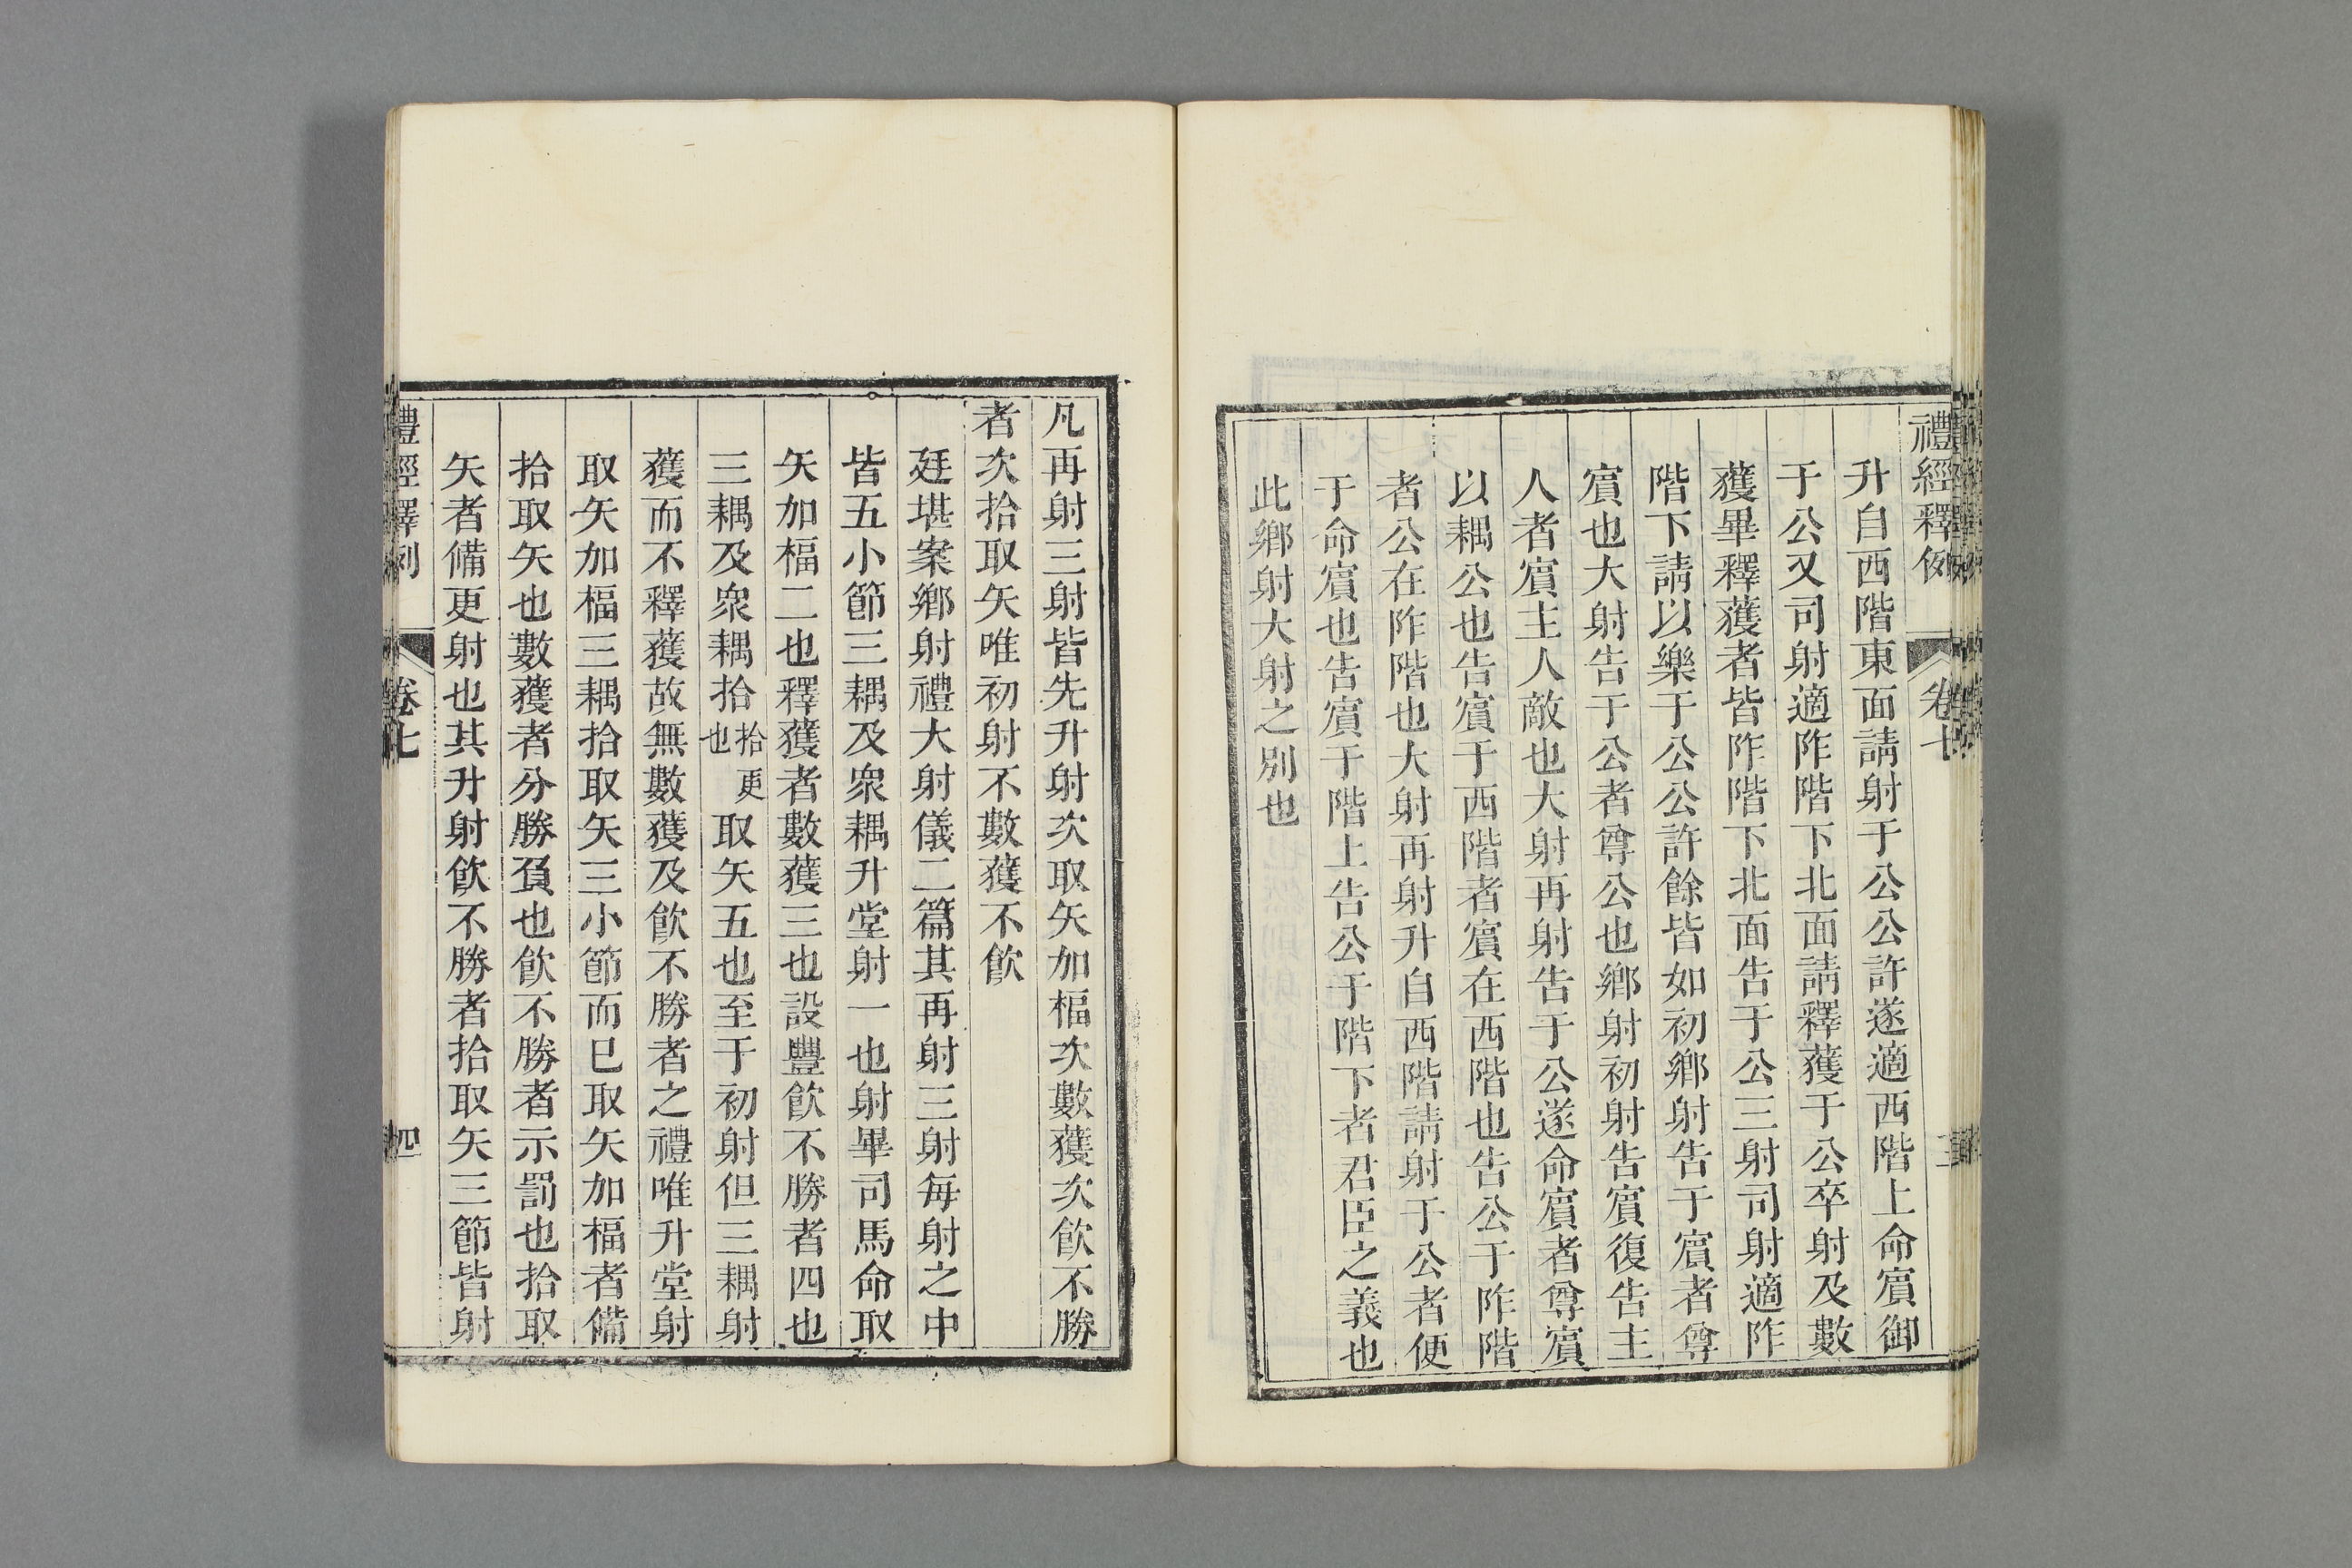 禮經釋例 卷七 三
升自西階東面請射于公公許遂適西階上命賓御
于公又司射適阼階下北面請釋獲于公卒射及數
獲畢釋獲者皆阼階下北面告于公三射司射適阼
階下請以樂于公公許餘皆如初鄉射告于賓者尊
賓也大射告于公者尊公也鄉射初射告賓復告主
人者賓主人敵也大射再射告于公遂命賓者尊賓
以耦公也告賓于西階者賓在西階也告公于阼階
者公在阼階也大射再射升自西階請射于公者便
于命賓也告賓于階上告公于階下者君臣之義也
此鄉射大射之別也
凡再射三射皆先升射次取矢加楅次數獲次飮不勝
者次拾取矢唯初射不數獲不飮
廷堪案鄉射禮大射儀二篇其再射三射每射之中
皆五小節三耦及衆耦升堂射一也射畢司馬命取
矢加楅二也釋獲者數獲三也設豐飮不勝者四也
三耦及衆耦拾拾更也取矢五也至于初射但三耦射
獲而不釋獲故無數獲及飮不勝者之禮唯升堂射
取矢加楅三耦拾取矢三小節而已取矢加楅者備
拾取矢也數獲者分勝負也飮不勝者示罰也拾取
矢者備更射也其升射飮不勝者拾取矢三節皆射
禮經釋例 卷七 四